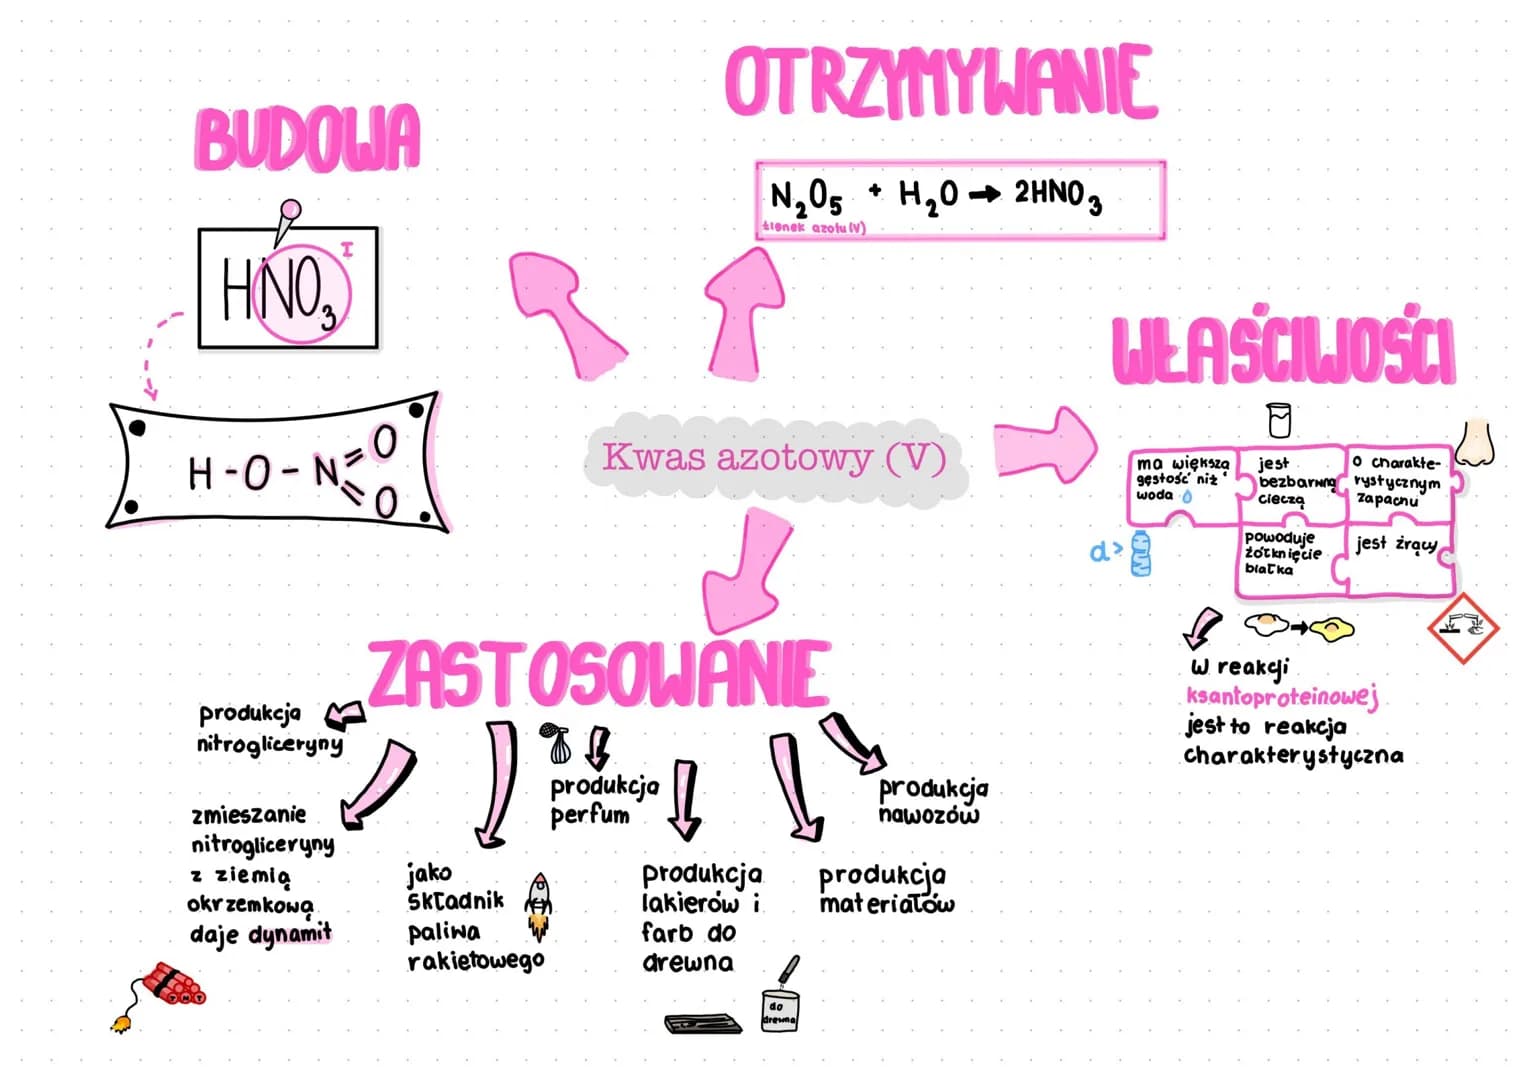 OTRZYMYWANIE
BUDOWA
N₂O₅ + H₂O → 2HNO₃
tlenek azotu (V)
HNO₃
I
WŁAŚCIWOŚCI
H-O-N=O
=O
Kwas azotowy (V)
ma większą
gęstość niż
woda
jest
bezbarwną
cieczą
o charakte-
rystycznym
zapachu
d>
powoduje
żółknięcie
białka
jest żrący
w reakcji
ksantoproteinowej
jest to reakcja
charakterystyczna
ZASTOSOWANIE
produkcja
nitrogliceryny
zmieszanie
nitrogliceryny
z ziemią
okrzemkową
daje dynamit
TNT
jako
składnik
paliwa
rakietowego
produkcja
perfum
produkcja
lakierów i
farb do
drewna
do
drewna
produkcja
materiałów
produkcja
nawozów